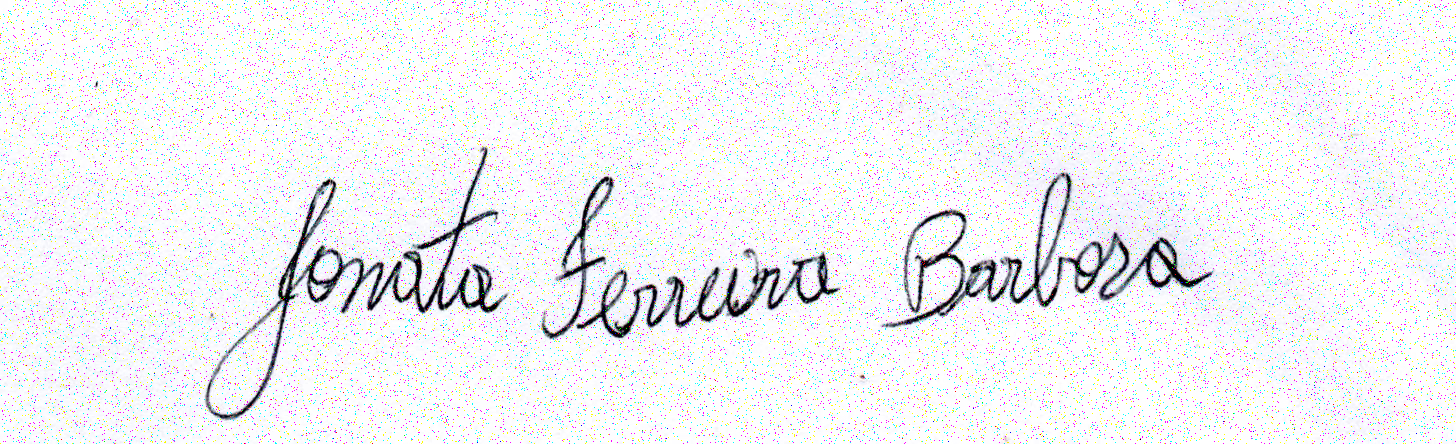 Jonata Ferreira Barbosa